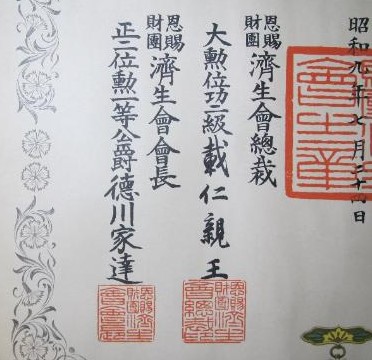 昭和九年七月二十四日
恩賜財團濟生會總裁
大勲位功二級載仁親王
恩賜財團濟生會會長
正二位勲一等公爵德川家達